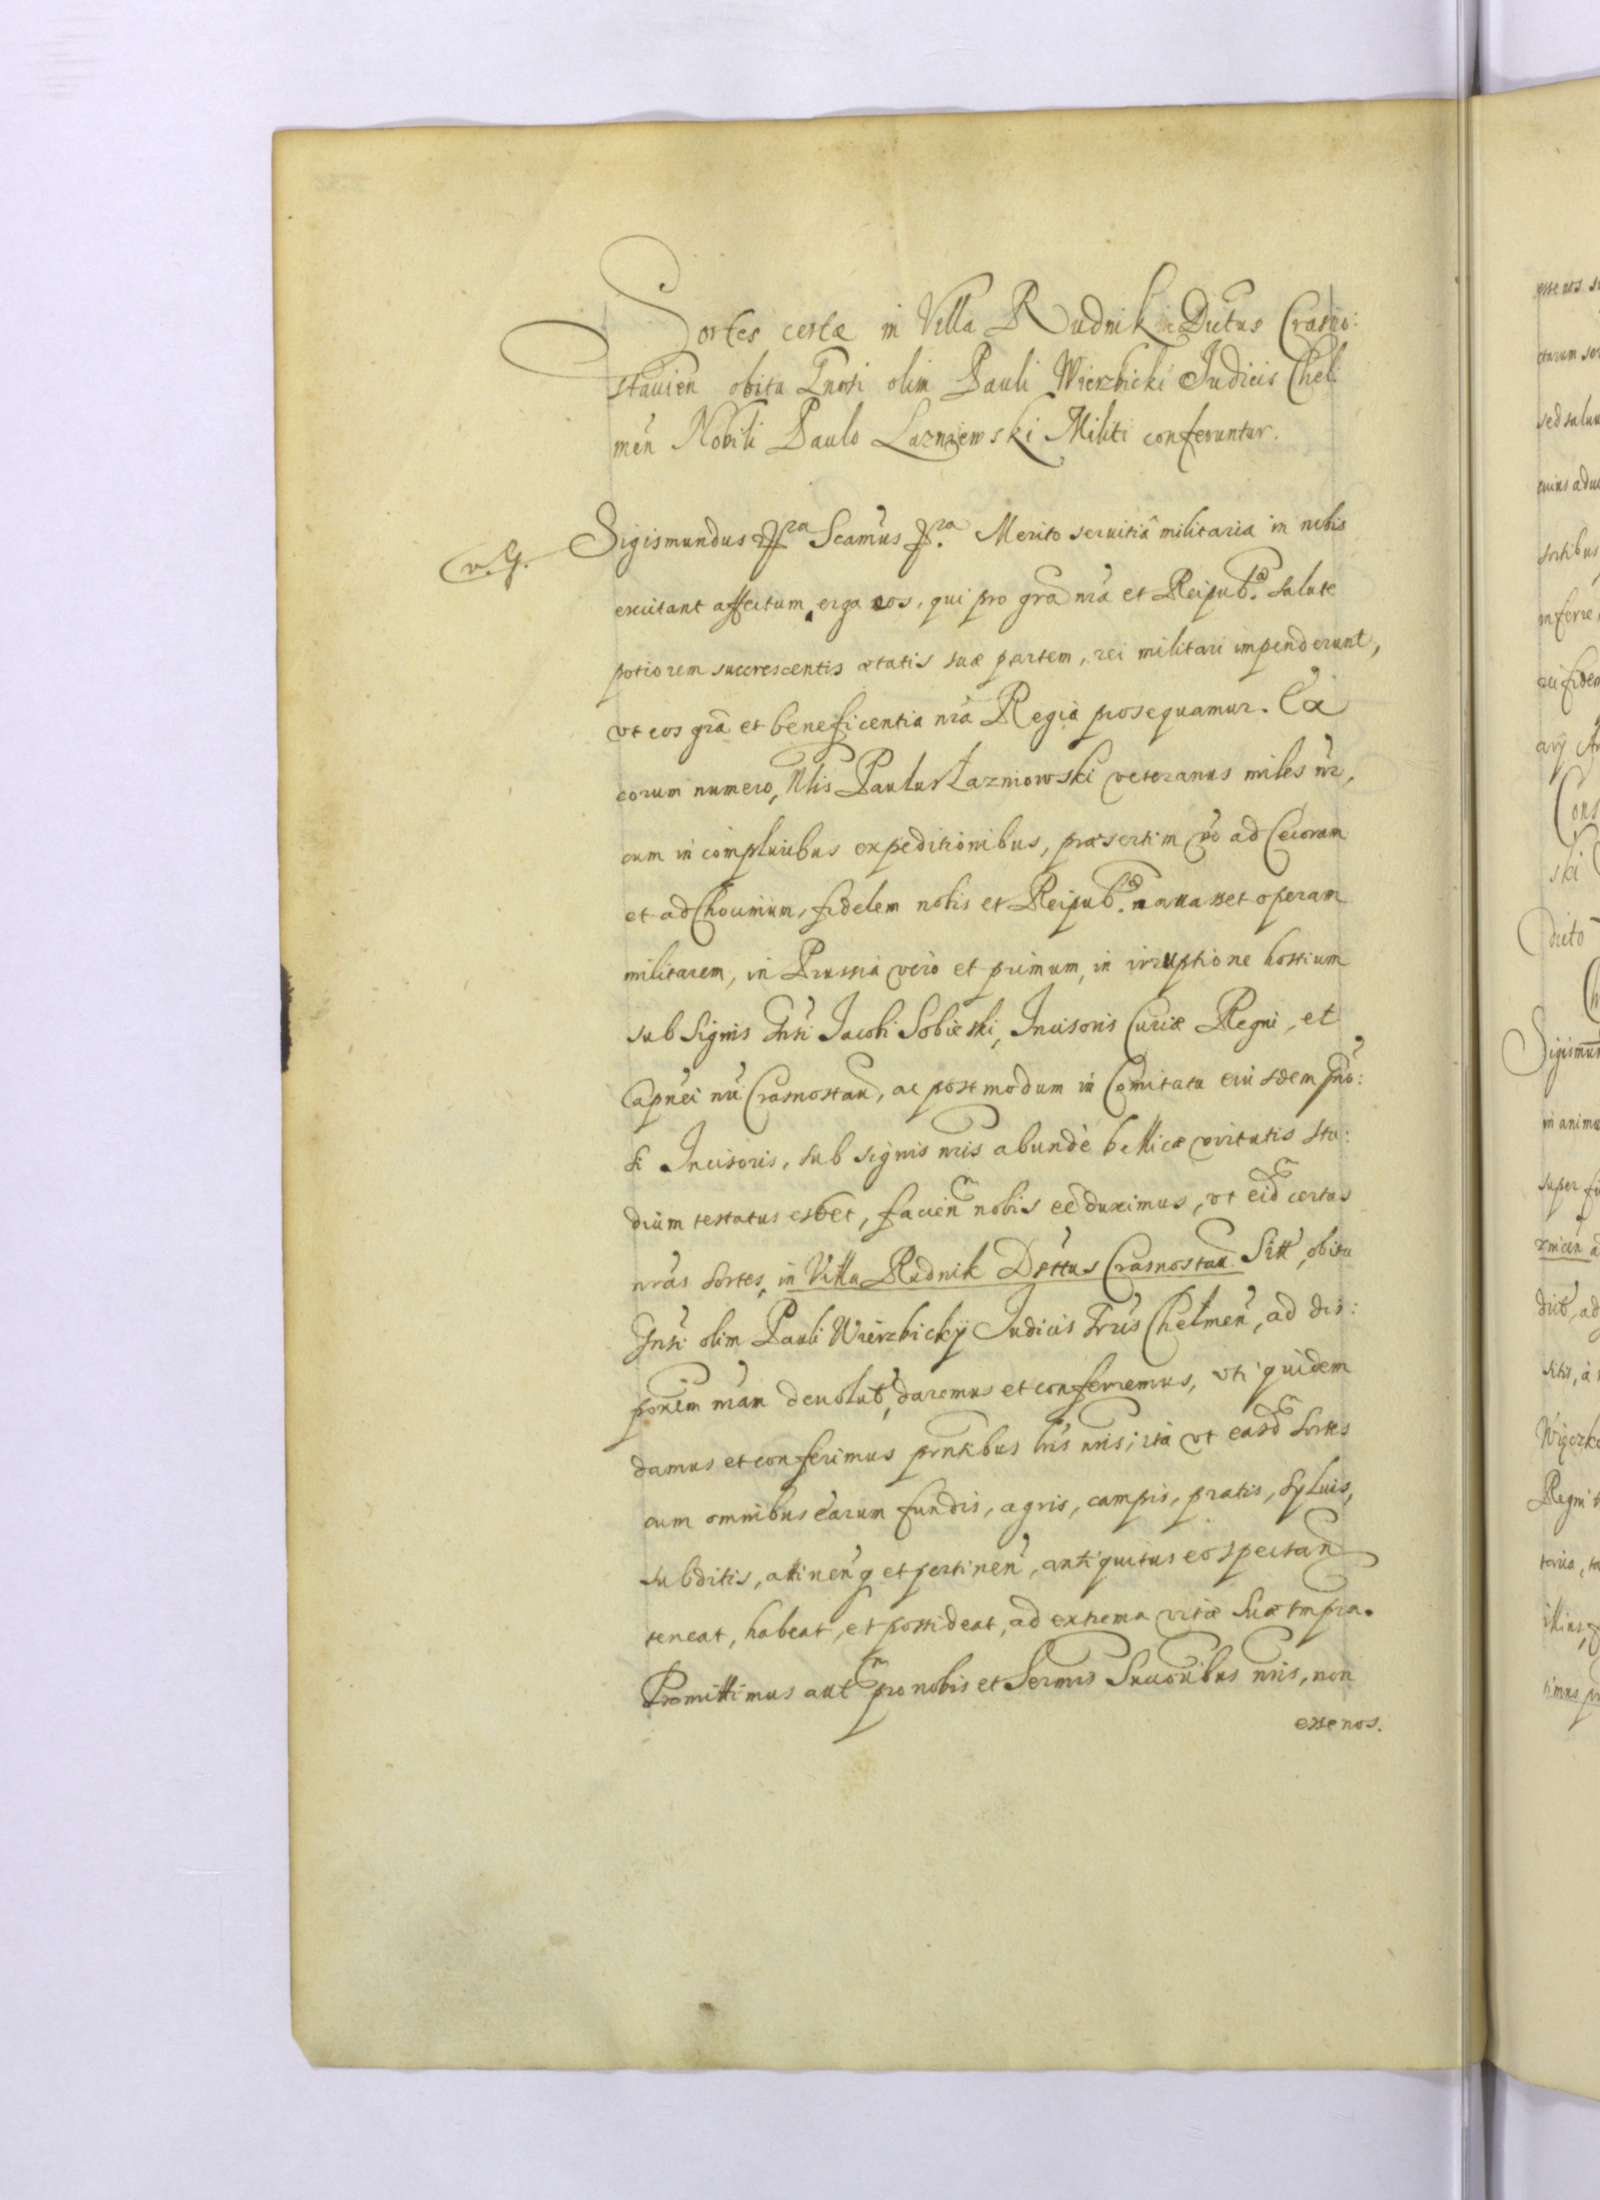 Sortes certæ in Villa Rudnik Dictus Crasno:
stauien obitu Gnosi olim Pauli Wierzbicki Judicis Chel
men̄ Nobili Paulo Lazniewski Militi conferuntur.
v. G. Sigismundus Scamus Merito seruitia militaria in nobis
excitant affectum erga eos, qui pro gra nrã et Reipub. salute
potiorem succrescentis ætatis suæ partem, rei militari impenderunt,
vt eos grã et beneficentia nrã Regia prosequamur. Ex
eorum numero, Nlis Paulus Łazniowski veteranus miles nr,
cum in compluribus expeditionibus, præsertim vo ad Cecoram
et ad Chocimum, fidelem nobis et Reipub. nauasset operam
militarem, in Prussia vero et primum, in irruptione hostium
sub signis Gnsi Jacobi Sobieski, Incisoris Curiæ Regni, et
Capnei nri Crasnostau, ac postmodum in Comitatu eiusdem Gno:
si Incisoris, sub signis nris abundè bellicæ virtutis stu:
dium testatus esset, facien nobis eē duximus, vt eid certas
nrãs sortes, in Villa Rudnik Dsttus Crasnostau Sitt, obitu
Gnsi olim Pauli Wierzbickÿ Judicis Trris Chełmen, ad dis:
ponem nrãm deuolut, daremus et conferremus, vti quidem
damus et conferimus pntibus lris nris; ita vt easd sortes
cum omnibus earum fundis, agris, campis, pratis, syluis,
subditis, attinen q et pertinen, antiquitus eo spectan
teneat, habeat, et possideat, ad extrema vitæ suæ tmpra.
Promittimus aut pro nobis et Sermis Succoribus nris, non
esse nos.